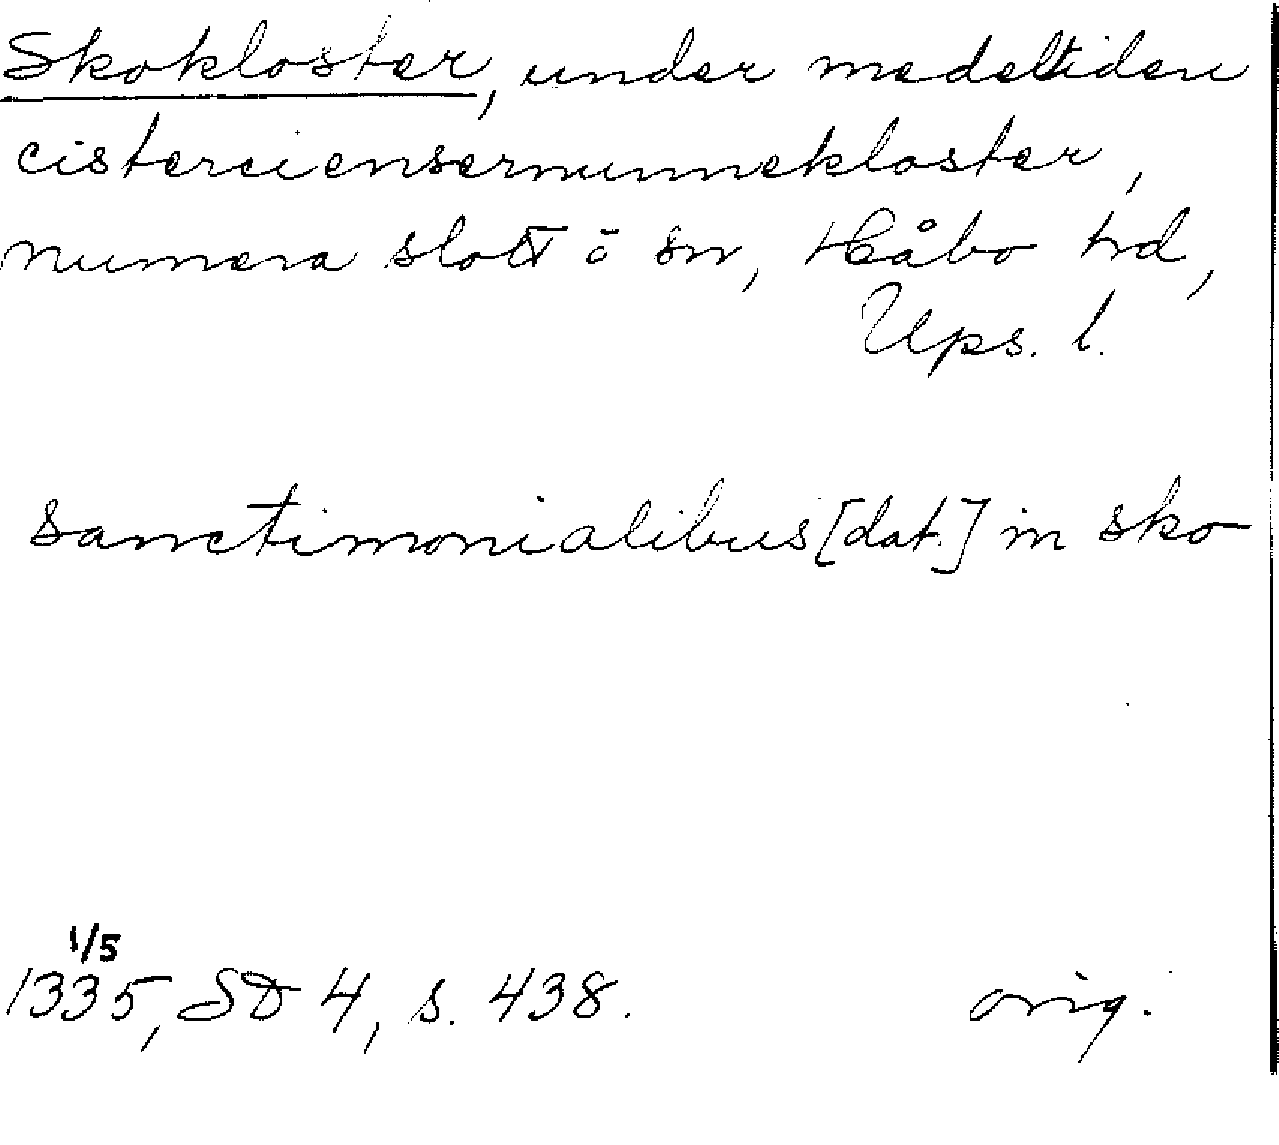 Skokloster, under medeltiden
cisterciensernunnekloster,
numera slott o sn, Håbo hd,
Ups. l.
sanctimonialibus [dat.] in sko
1/5
1335, SD 4, s. 438. orig.